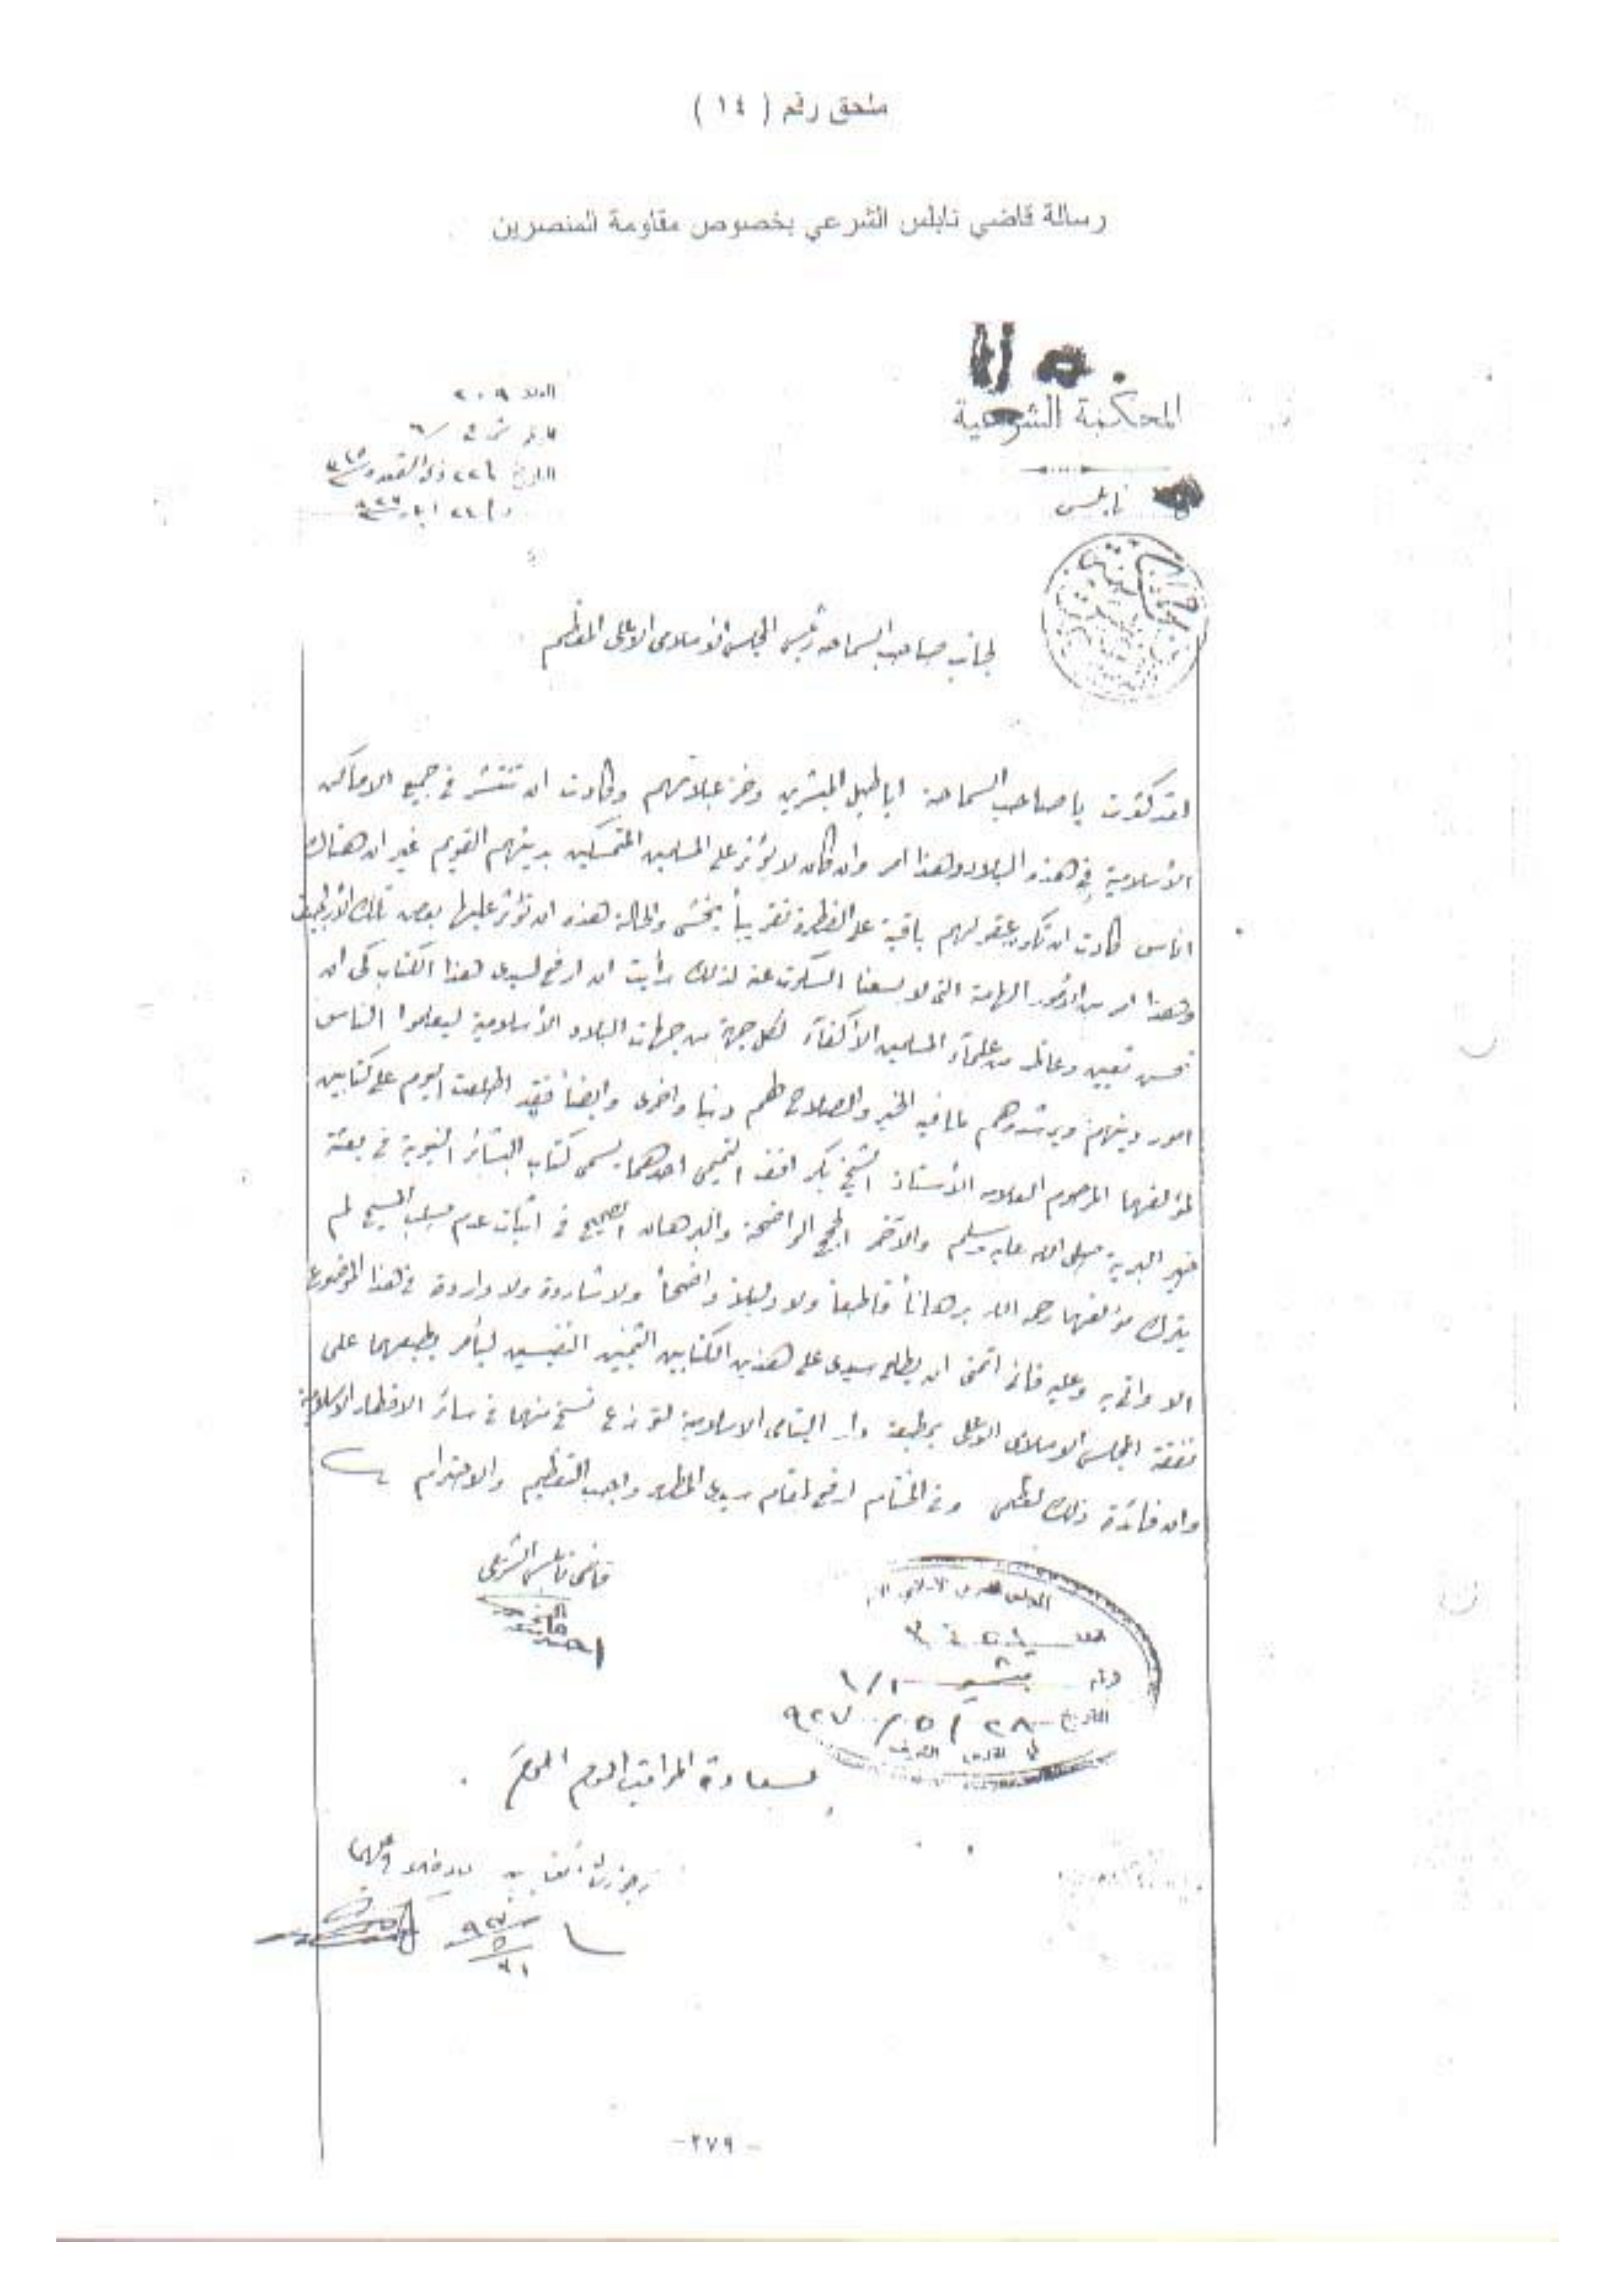 ملحق رقم ( ١٤ )
رسالة قاضي نابلس الشرعي بخصوص مقاومة المنصرين
المحكمة الشرعية
نابلس
العدد ٢٠٩
التاريخ ٢٢ ذي القعدة
٢٤ ايار
لجانب صاحب السماحة رئيس المجلس الاسلامي الاعلى المعظم
لقد كثرت يا صاحب السماحة اباطيل المبشرين وخزعبلاتهم وكادت ان تنتشر في جميع الاماكن
الأسلامية في هذه البلاد وهذا امر وان كان لا يؤثر على المسلمين المتمسكين بدينهم القويم غير ان هناك
اناس كادت ان تكون عقولهم باقية على الفطرة تقريباً يخشى والحالة هذه ان تؤثر عليها بعض تلك الأباطيل
وهذا امر من الأمور الهامة التي لا يسعنا السكوت عنه لذلك رأيت ان ارفع لسيدي هذا الكتاب كي ان
تحسن تعيين وعاظ من علماء المسلمين الأكفاء لكل جهة من جهات البلاد الأسلامية ليعلموا الناس
امور دينهم ويرشدوهم لما فيه الخير والصلاح لهم دنيا واخرى وايضاً فقد اطلعت اليوم على كتابين
لمؤلفهما المرحوم العلامه الأستاذ الشيخ بكر افندي التميمي احدهما يسمى كتاب البشائر النبوية في بعثة
خير البرية صلى الله عليه وسلم والآخر الحجج الواضحة والبرهان الصحيح في اثبات عدم صلب المسيح لم
يترك مؤلفهما رحمه الله برهاناً قاطعاً ولا دليلاً واضحاً ولا شاردة ولا واردة في هذا الموضوع
الا واتى به وعليه فاني اتمنى ان يطلع سيدي على هذين الكتابين الثمينين النفيسين ليأمر بطبعهما على
نفقة المجلس الاسلامي الاعلى بمطبعة دار اليتامى الاسلامية لتوزع نسخ منهما في سائر الاقطار الاسلامية
وان فائدة ذلك لعظمى وفي الختام ارفع لمقام سيدي الخطير واجب التعظيم والاحترام
قاضي نابلس الشرعي
التاريخ ٢٨ / ٥ / ٩٢٧
في القدس الشريف
لسعادة المراقب العام المحترم
٩٢٧
٥
- ٢٧٩ -